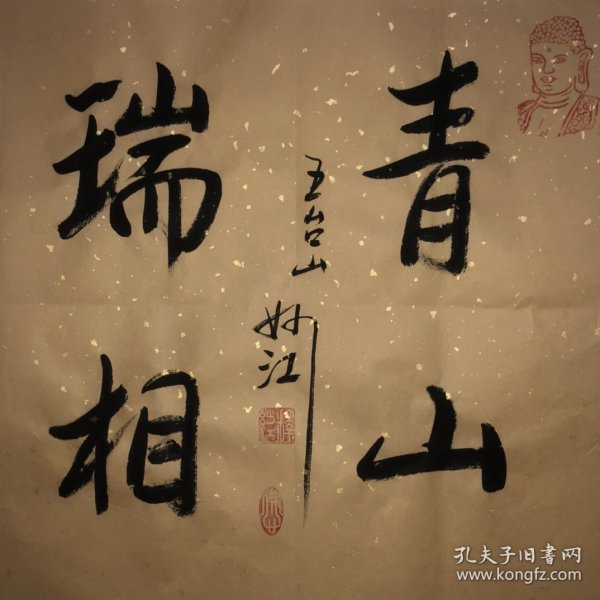 青山
瑞相
五台山
妙江
孔夫子旧书网
www.kongfz.com